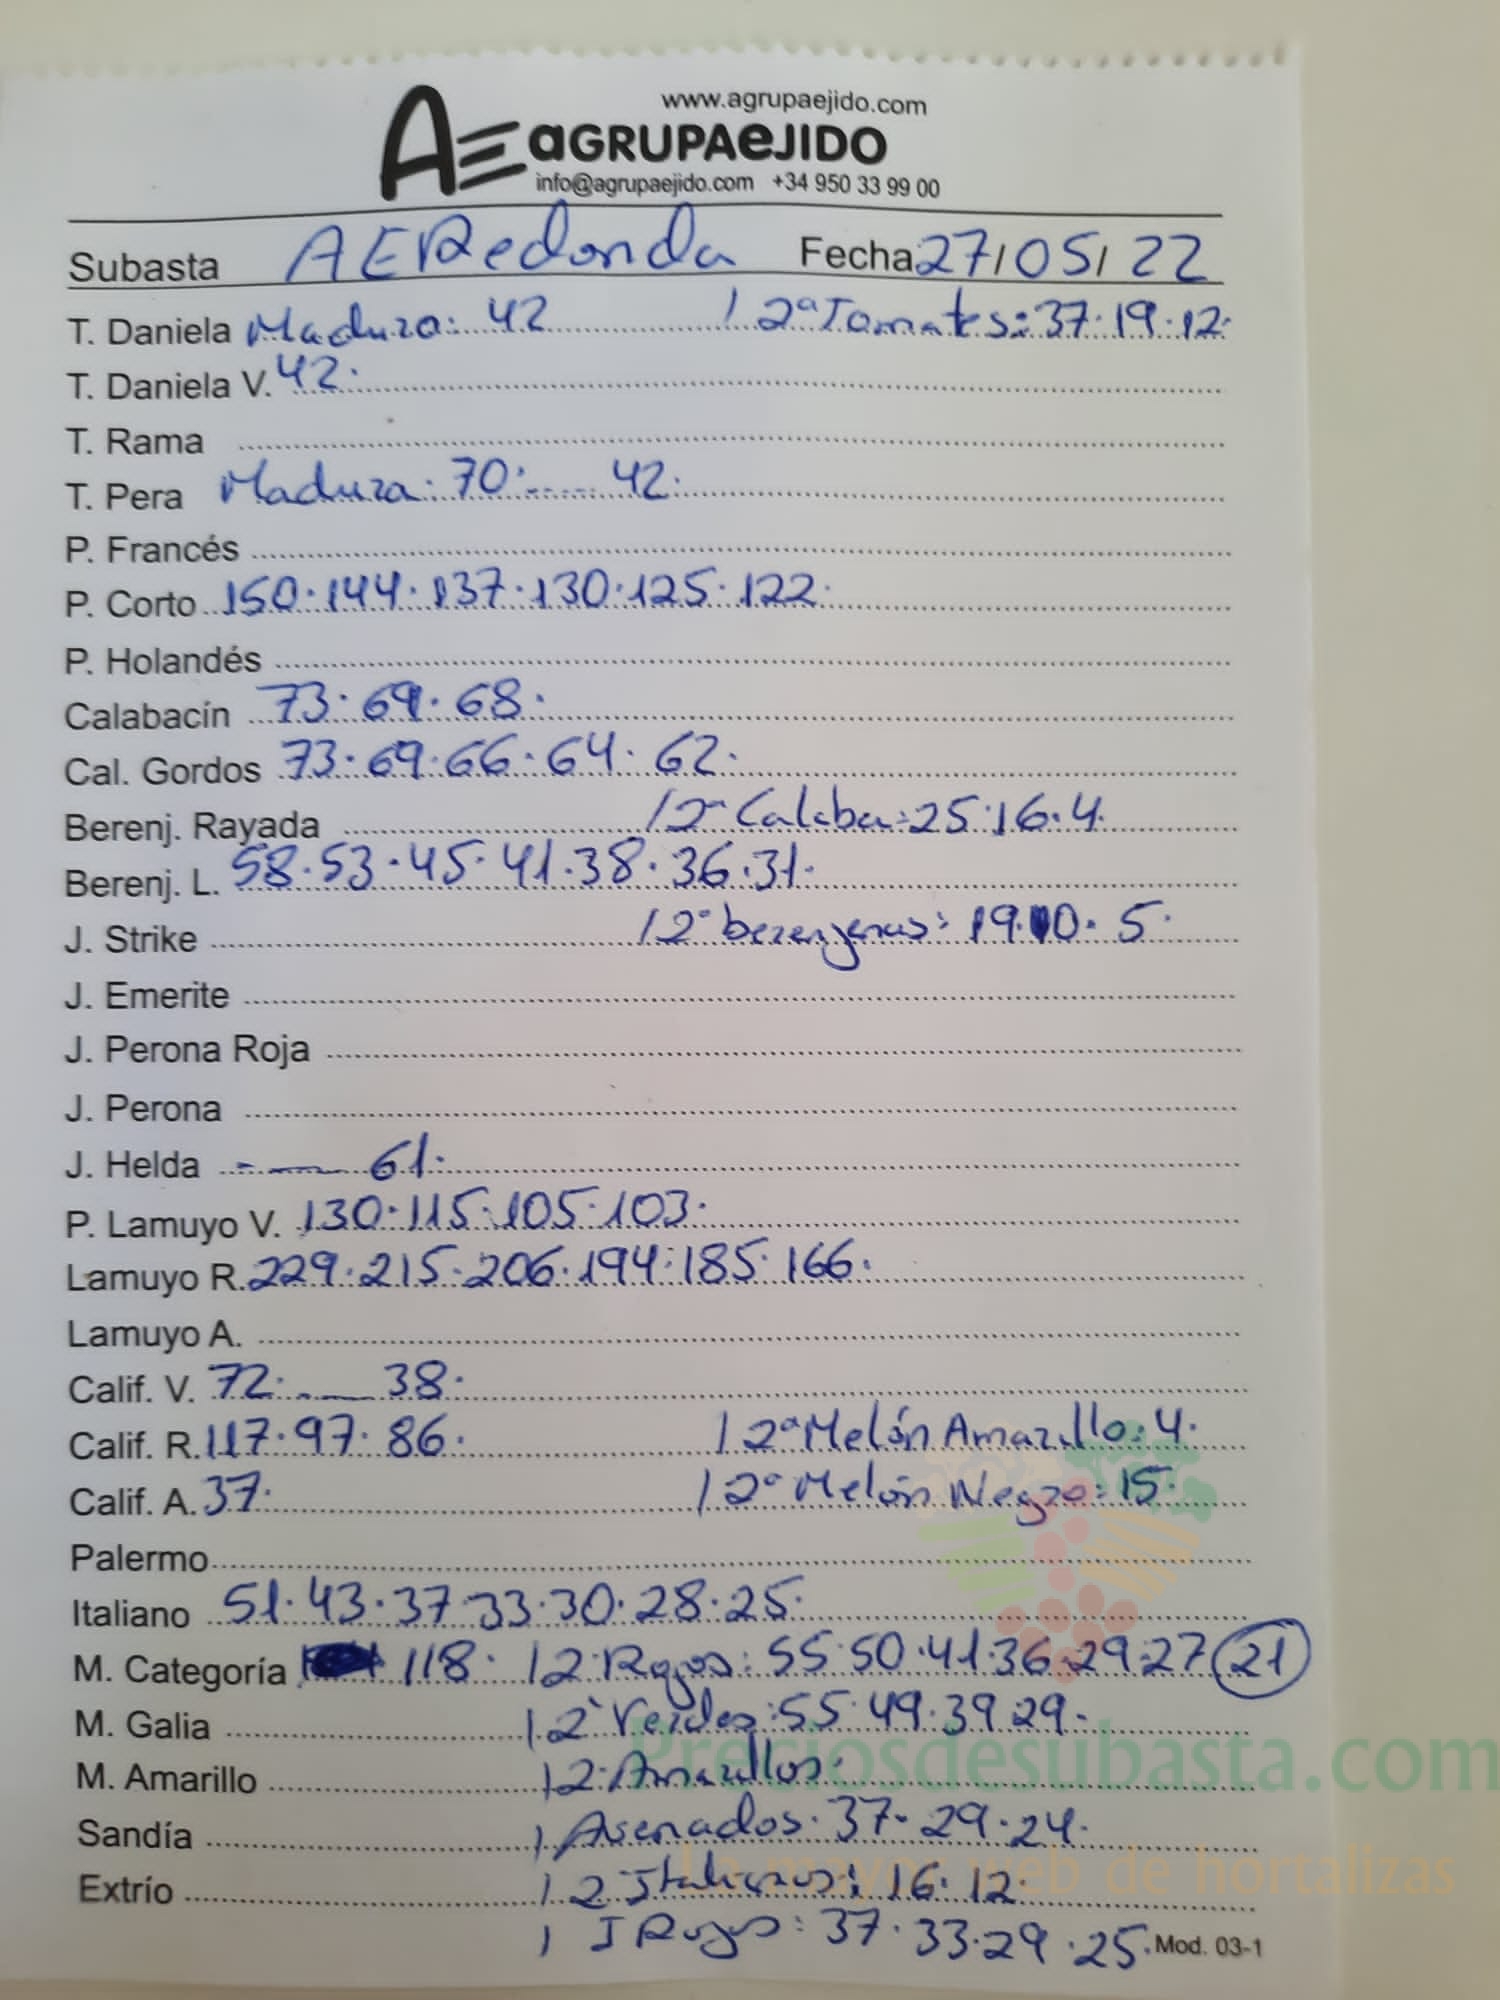 www.agrupaejido.com
AE aGRUPAeJIDO
info@agrupaejido.com +34 950 33 99 00
Subasta AERedonda Fecha 27/05/22
T. Daniela Madura: 42 / 2ª Tomates: 37·19·12·
T. Daniela V. 42·
T. Rama
T. Pera Madura: 70· 42·
P. Francés
P. Corto 150·144·137·130·125·122·
P. Holandés
Calabacín 73·69·68·
Cal. Gordos 73·69·66·64·62·
Berenj. Rayada / 2ª Calaba: 25·16·4·
Berenj. L. 58·53·45·41·38·36·31·
J. Strike / 2ª berenjenas: 19·10·5·
J. Emerite
J. Perona Roja
J. Perona
J. Helda 61·
P. Lamuyo V. 130·115·105·103·
Lamuyo R. 229·215·206·194·185·166·
Lamuyo A.
Calif. V. 72· 38·
Calif. R. 117·97·86· / 2ª Melón Amarillo: 4·
Calif. A. 37· / 2ª Melón Negro: 15·
Palermo
Italiano 51·43·37·33·30·28·25·
M. Categoría 118· / 2ª Rojos: 55·50·41·36·29·27 21
M. Galia / 2ª Verdes: 55·49·39·29·
M. Amarillo / 2ª Amarillos:
Preciosdesubasta.com
Sandía / Asenados· 37·29·24·
La mayor web de hortalizas
Extrío / 2 Italianos: 16·12·
/ I Rojos: 37·33·29·25· Mod. 03-1